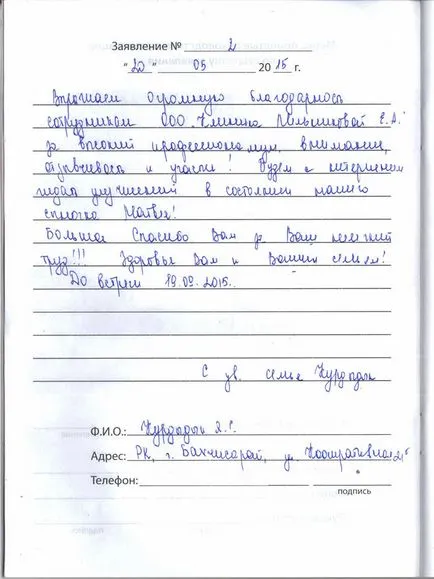 Заявление № 2
"20" 05 2015 г.
Выражаем огромную благодарность
сотрудникам ООО "Клиника Мельниковой Е.А."
за высокий профессионализм, внимание,
отзывчивость и участие! Будем с нетерпением
ждать улучшений в состоянии нашего
сыночка Матвея!
Большое Спасибо Вам за Ваш нелегкий
труд!!! Здоровья Вам и Вашим семьям!
До встречи 19.09.2015.
С ув. семья
Ф.И.О.:
Адрес: РК, г. Бахчисарай, ул. Кооперативная
Телефон:
подпись